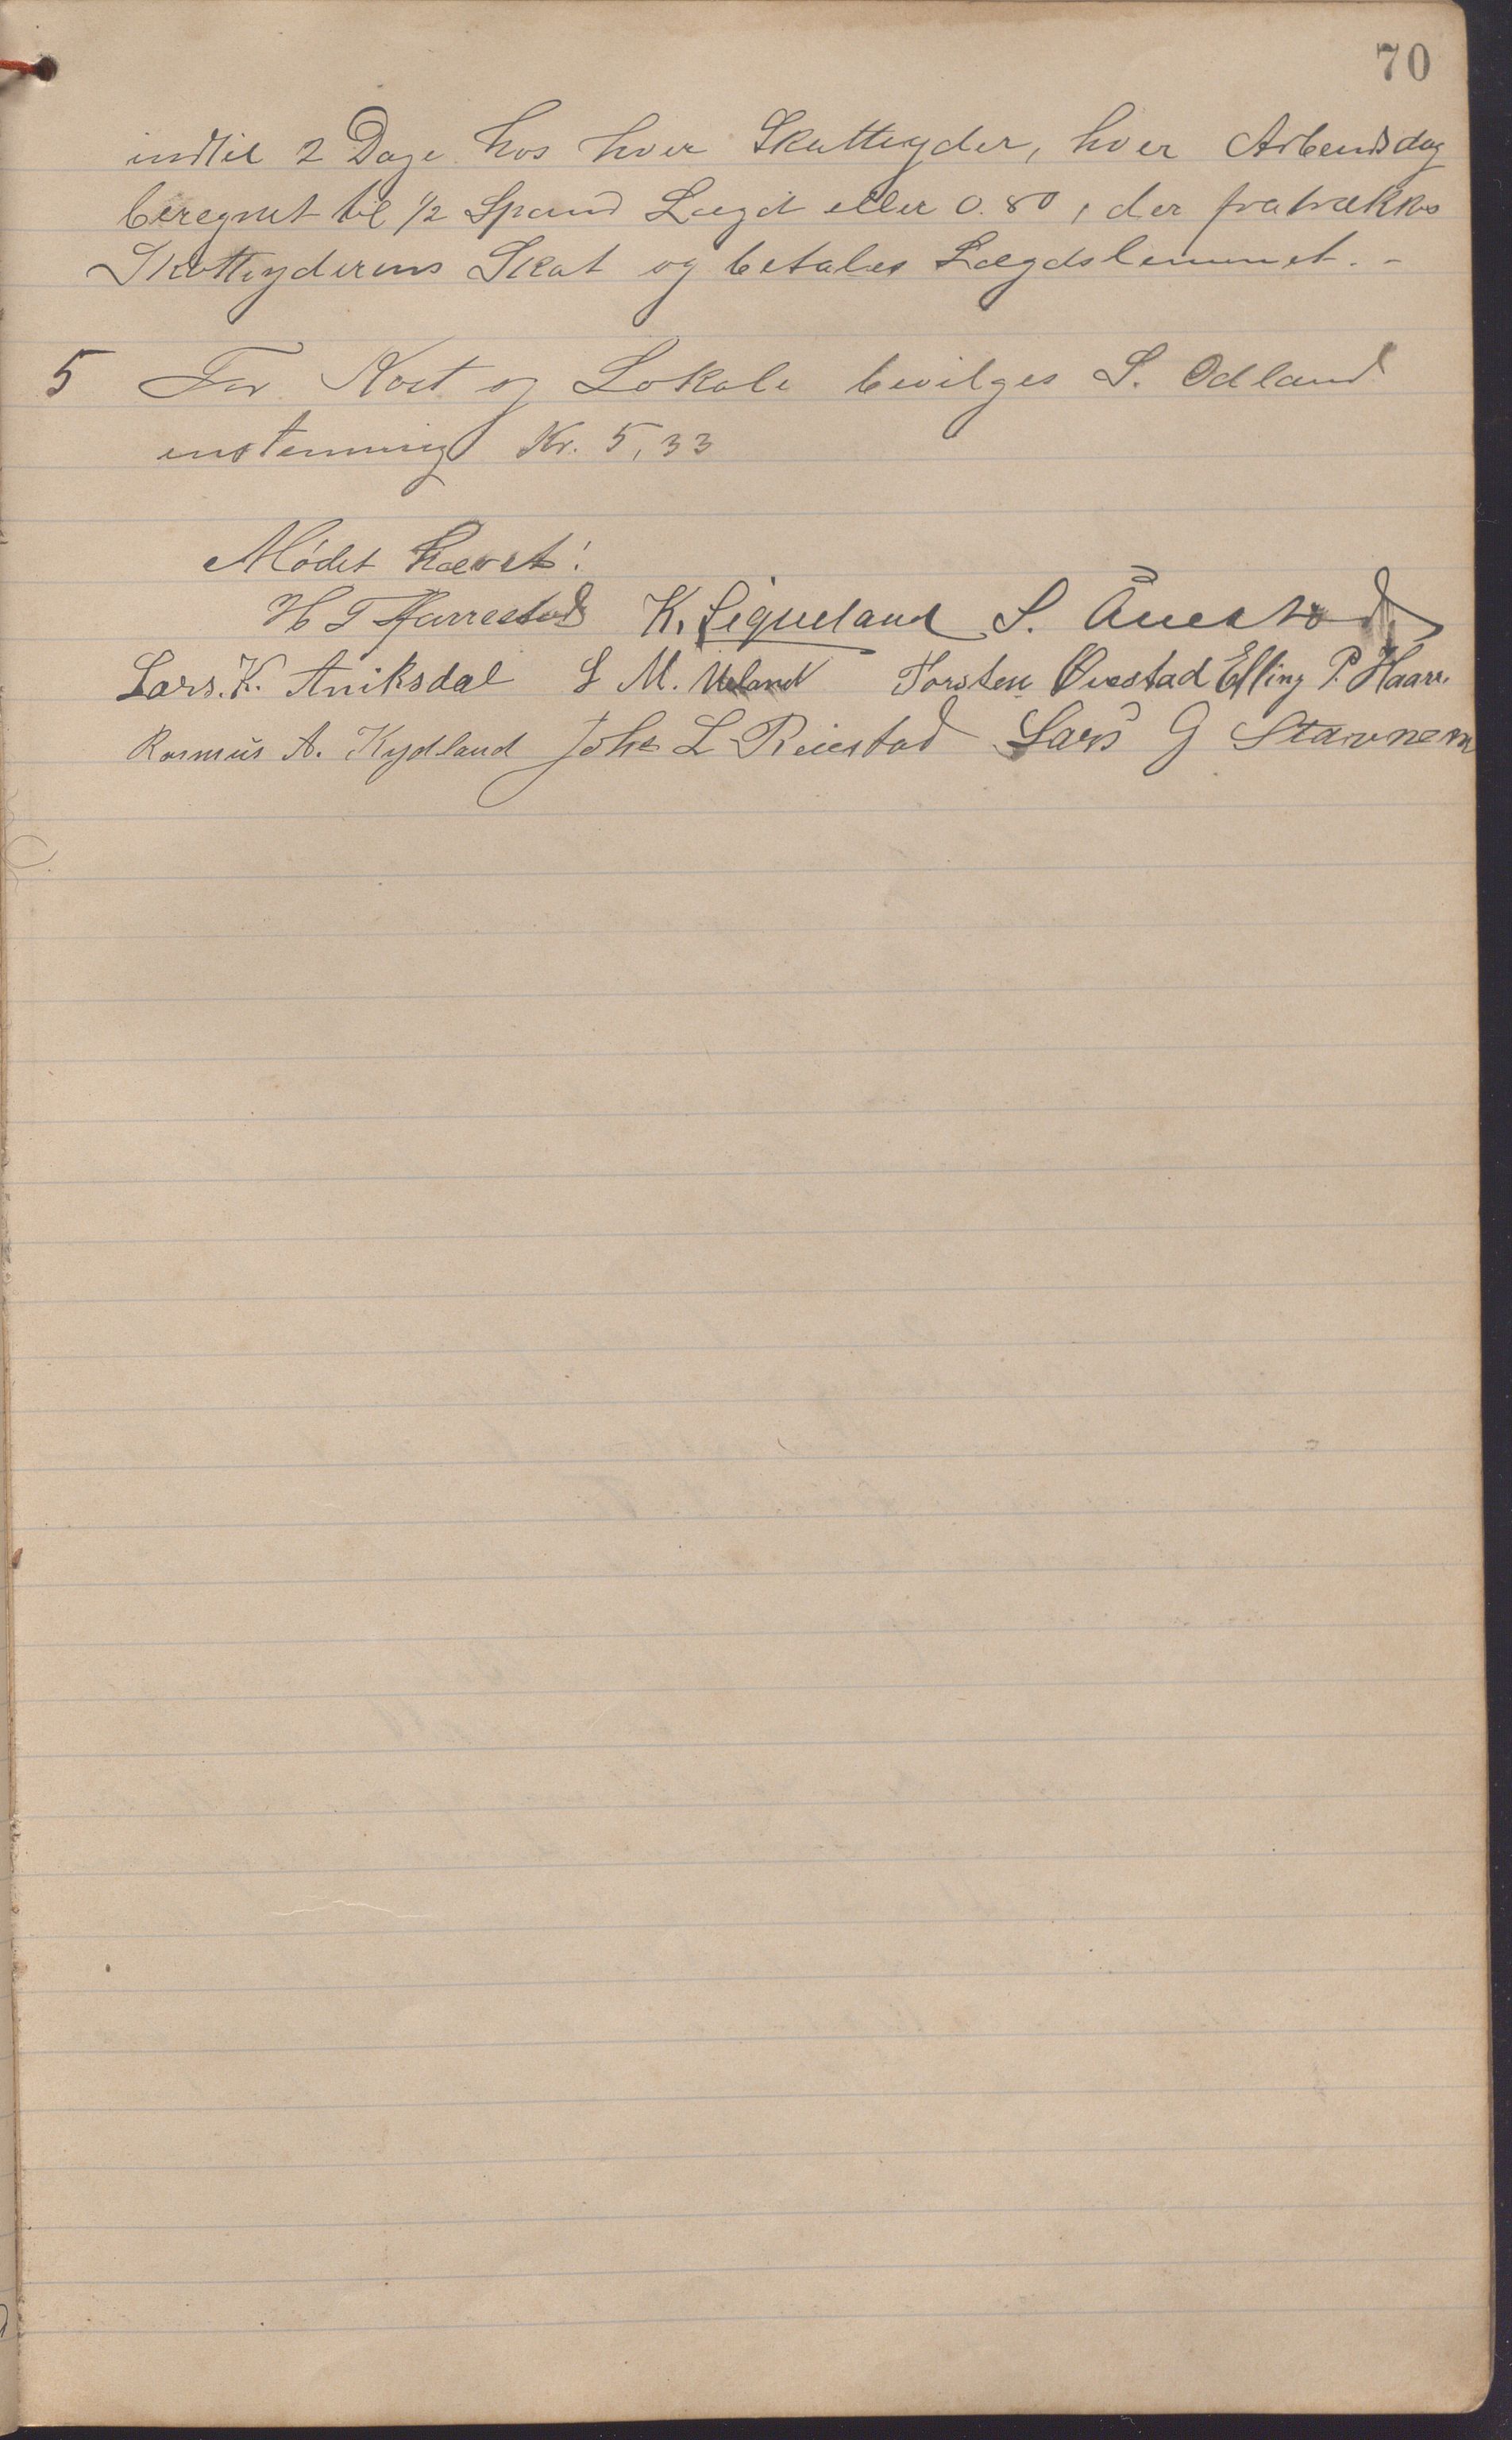 70
indtil 2 Dage hos hver Skatteyder, hver Arbeidsdag
beregnet til 1/2 Spand Lægd eller 0.80, der fratrækkes
Skatteyderens Skat og betales Lægdslemmet. -
5 For Kost og Lokale bevilges S. Odland
enstemmig Kr. 5,33
Mødet hævet!
H T Harrestad K. Ligueland S. Auestad
Lars. K. Aniksdal L M. Ueland Torsten Øvestad Elling P. Haarr.
Rasmus A. Kydland Johs L Reiestad Lars G Stavnem